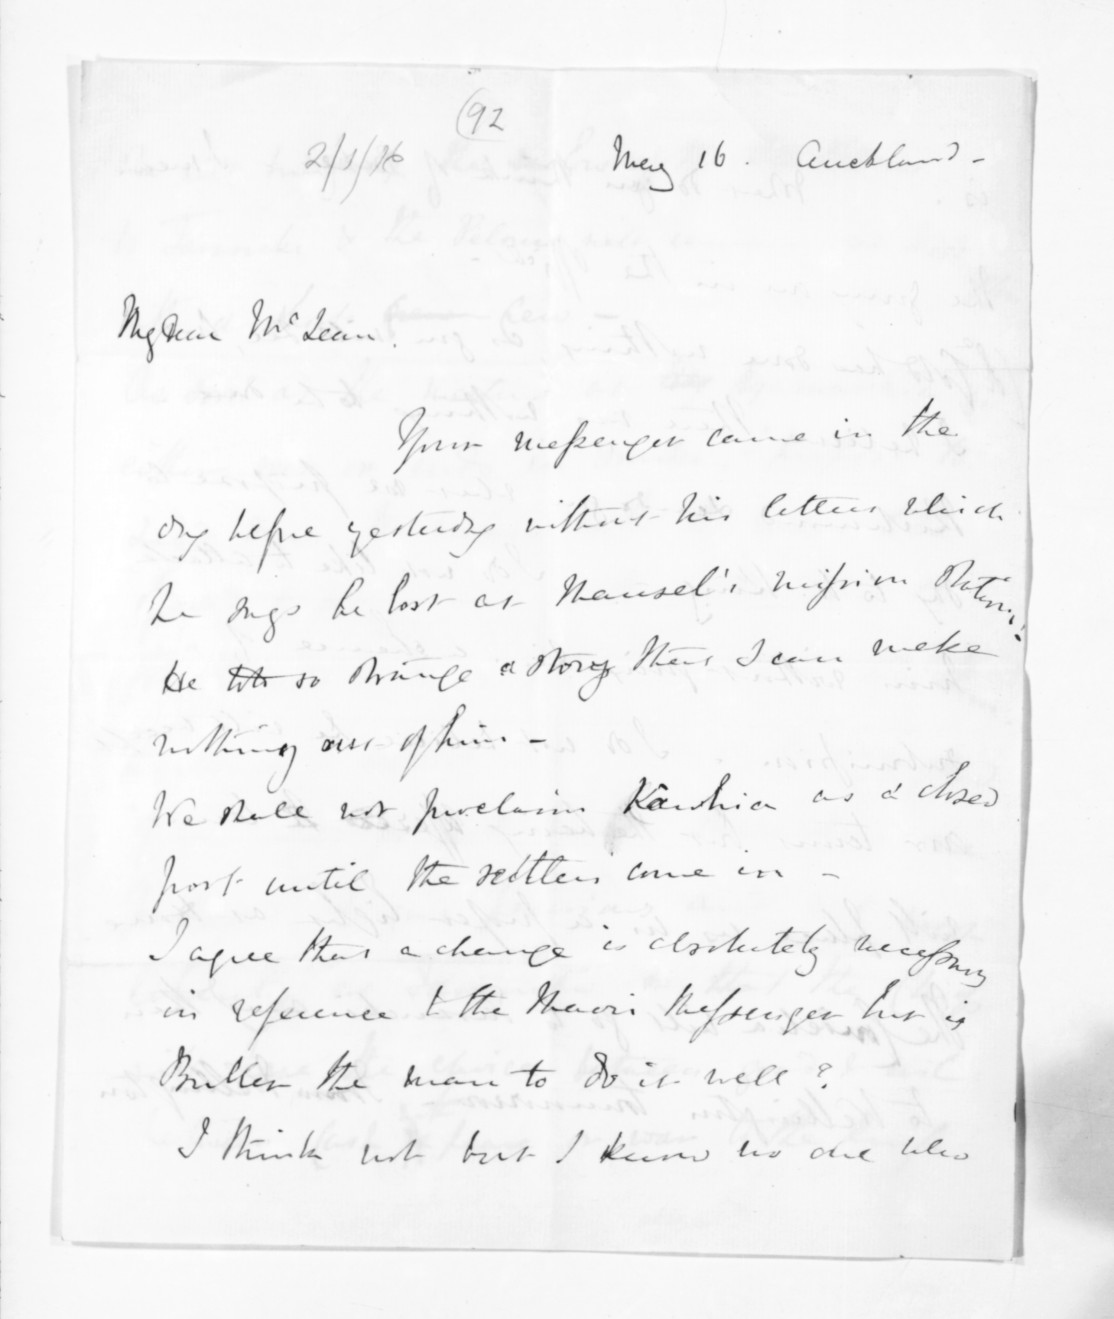 (92
May 16. Auckland -
My dear McLean.
Your messenger came in the
day before yesterday without his letters which
he says he lost at Maunsel's mission Station.
He tells so strange a story that I can make
nothing out of him -
We shall not proclaim Kawhia as a closed
port until the settlers come in -
I agree that a change is absolutely necessary
in reference to the Maori Messenger but is
Buller the man to do it well?
I think not but I know no one who